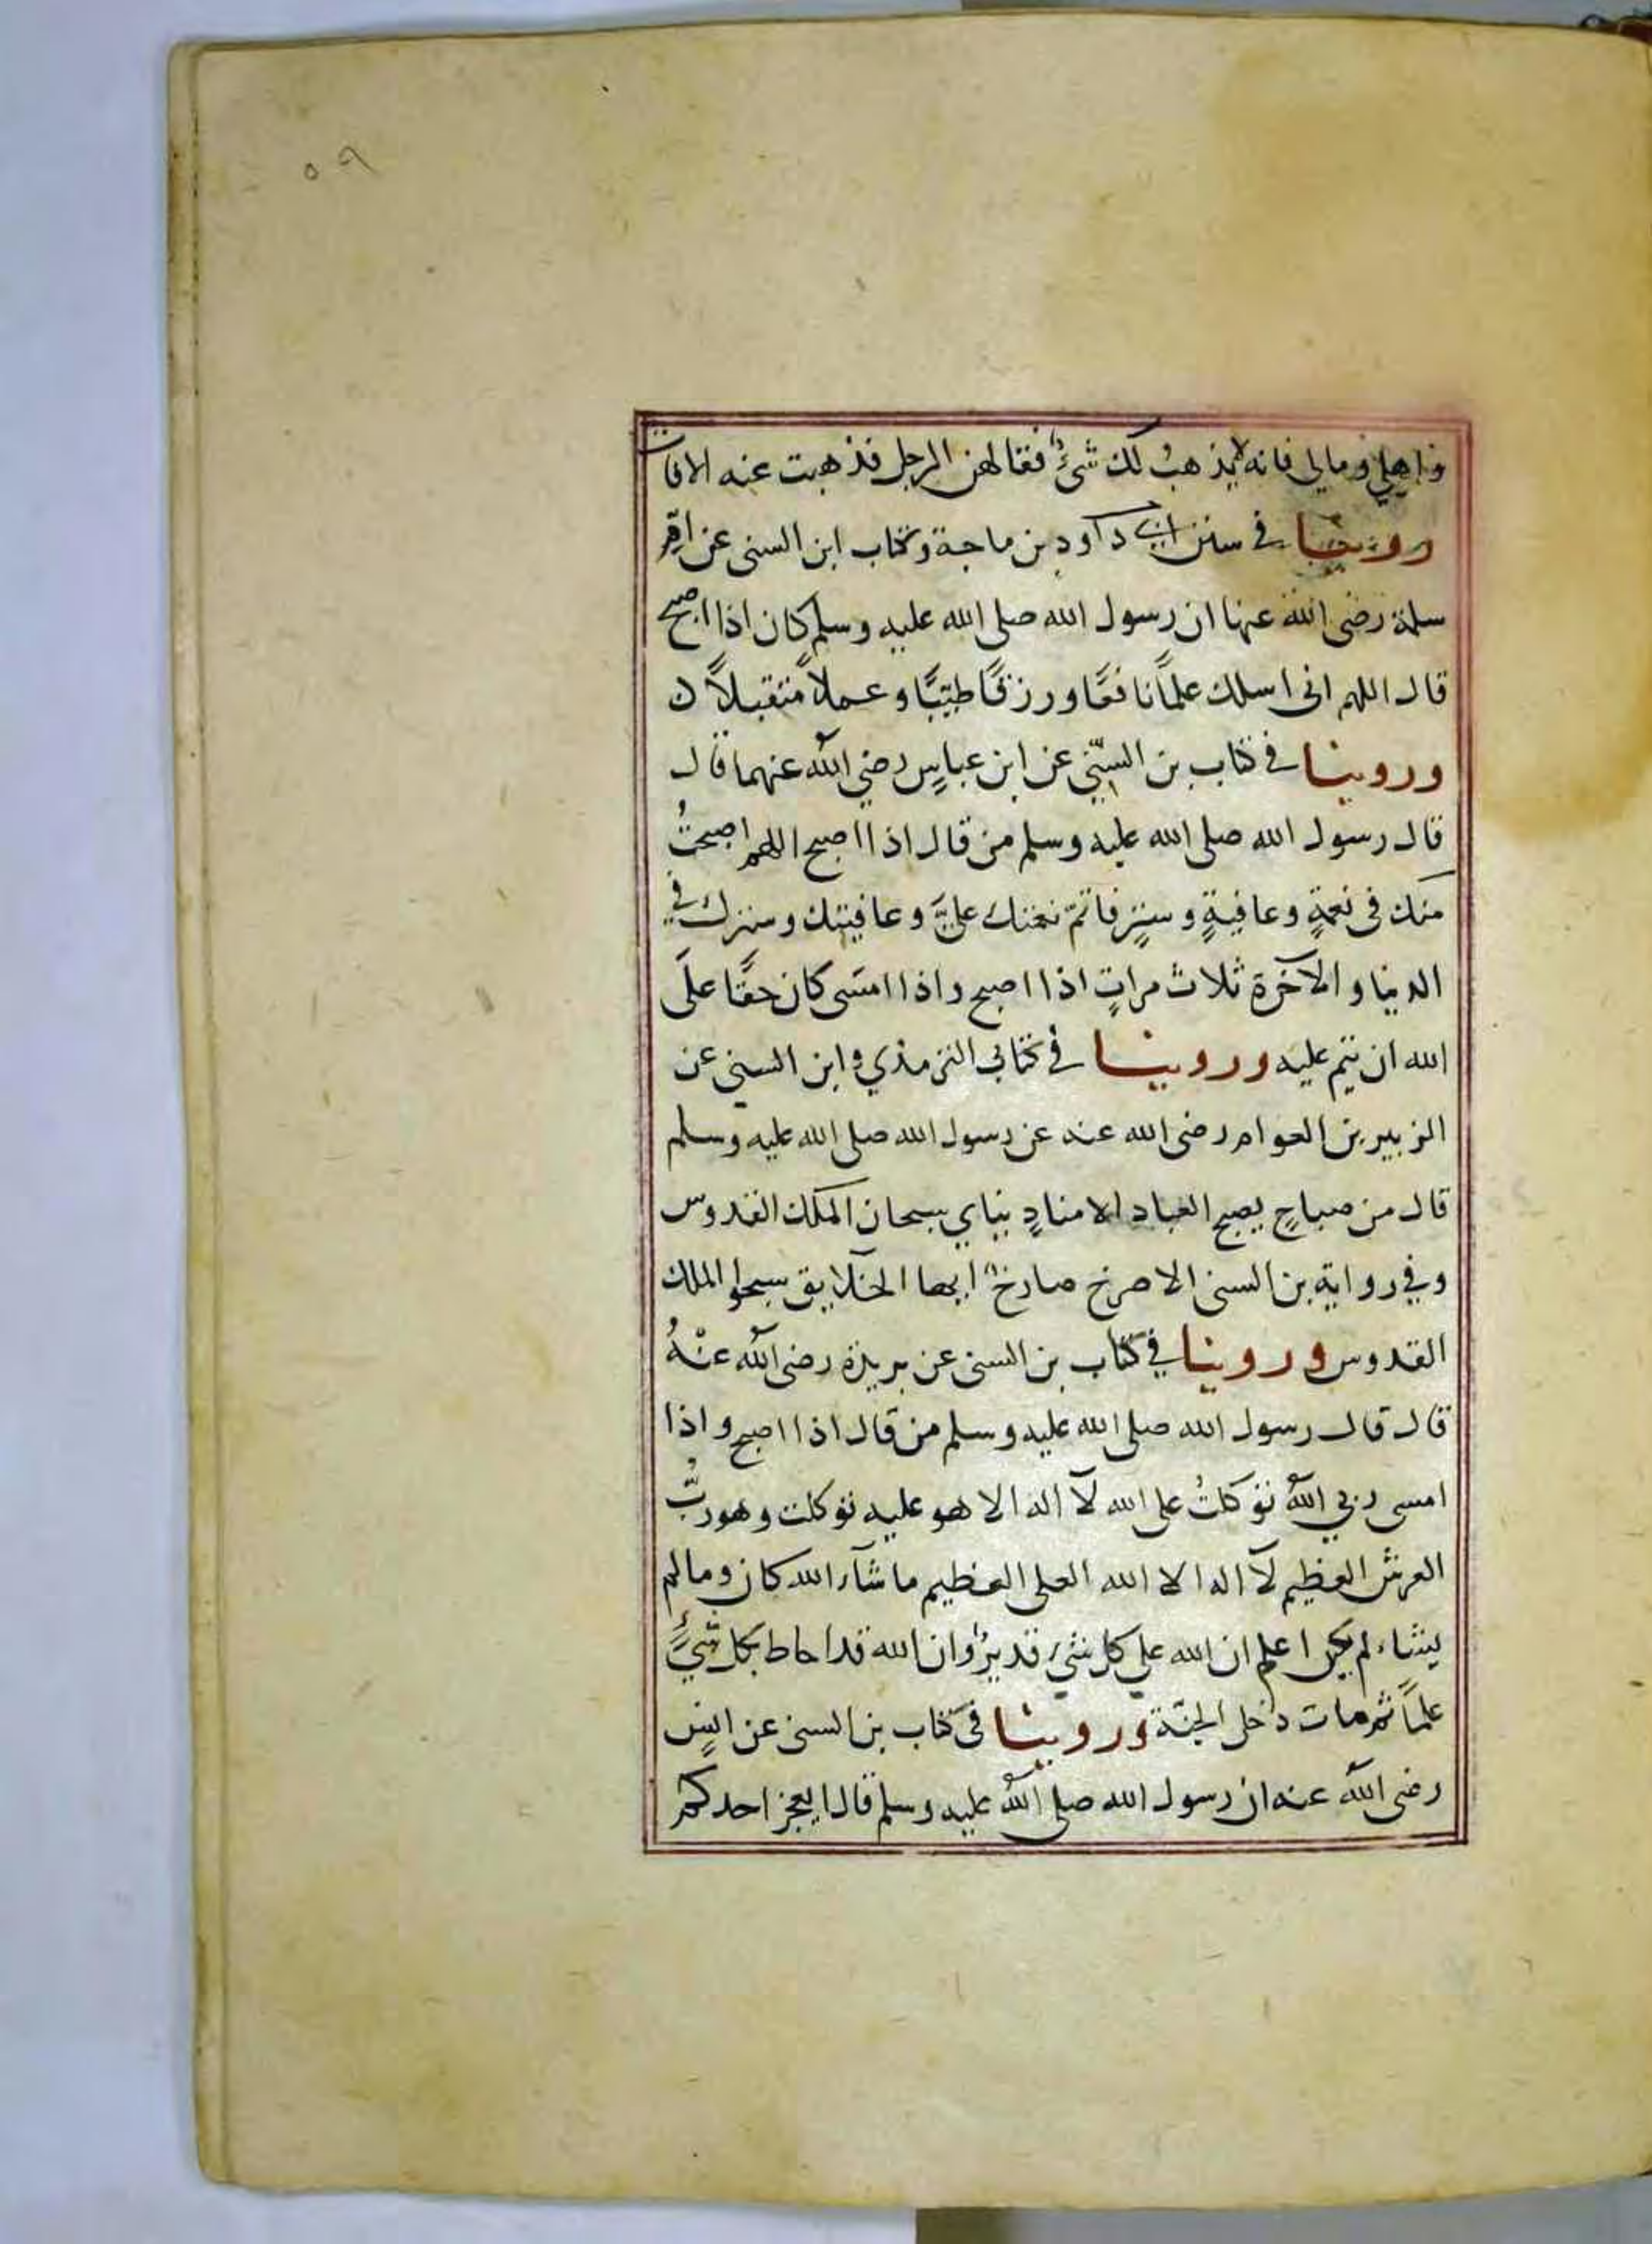 ٥٩
واهلي ومالي فانه لا يذهب لك شئٌ فقالهن الرجل فذهبت عنه الافات
وروينا في سنن ابي داود بن ماجة وكتاب ابن السنى عن ام
سلمة رضى الله عنها ان رسول الله صلى الله عليه وسلم كان اذا اصبح
قال اللهم انى اسلك علمًا نافعًا ورزقًا طيّبًا وعملاً متقبلاً
وروينا في كتاب بن السنّي عن ابن عباسٍ رضي الله عنهما قال
قال رسول الله صلى الله عليه وسلم من قال اذا اصبح اللهم اصبحتُ
منك فى نعمةٍ وعافيةٍ وسترٍ فاتمّ نعمتك عليَّ وعافيتك وسترك في
الدنيا والآخرة ثلاث مراتٍ اذا اصبح واذا امسَى كان حقًا علَى
الله ان يتم عليه وروينا في كتابي الترمذي وابن السنى عن
الزبير بن العوام رضى الله عنه عن رسول الله صلى الله عليه وسلم
قال من صباحٍ يصبح العباد الا منادٍ ينادي سبحان الملك القدوس
وفي رواية بن السنى الا صرخ صارخٌ ايها الخلايق سبحوا الملك
القدوس وروينا في كتاب بن السنى عن بريدة رضى الله عنْهُ
قال قال رسول الله صلى الله عليه وسلم من قال اذا اصبح واذا
امسى ربي اللهُ توكلتُ على الله لآ اله الا هو عليه توكلت وهو ربُّ
العرش العظيم لآ اله الا الله العلى العظيم ما شآء الله كان وما لم
يشاء لم يكن اعلم ان الله على كل شئٍ قديرٌ وان الله قد احاط بكل شيءٍ
علمًا ثم مات دخل الجنّة وروينا في كتاب بن السنى عن انسٍ
رضى الله عنه ان رسول الله صلى الله عليه وسلم قال ايعجز احدكم